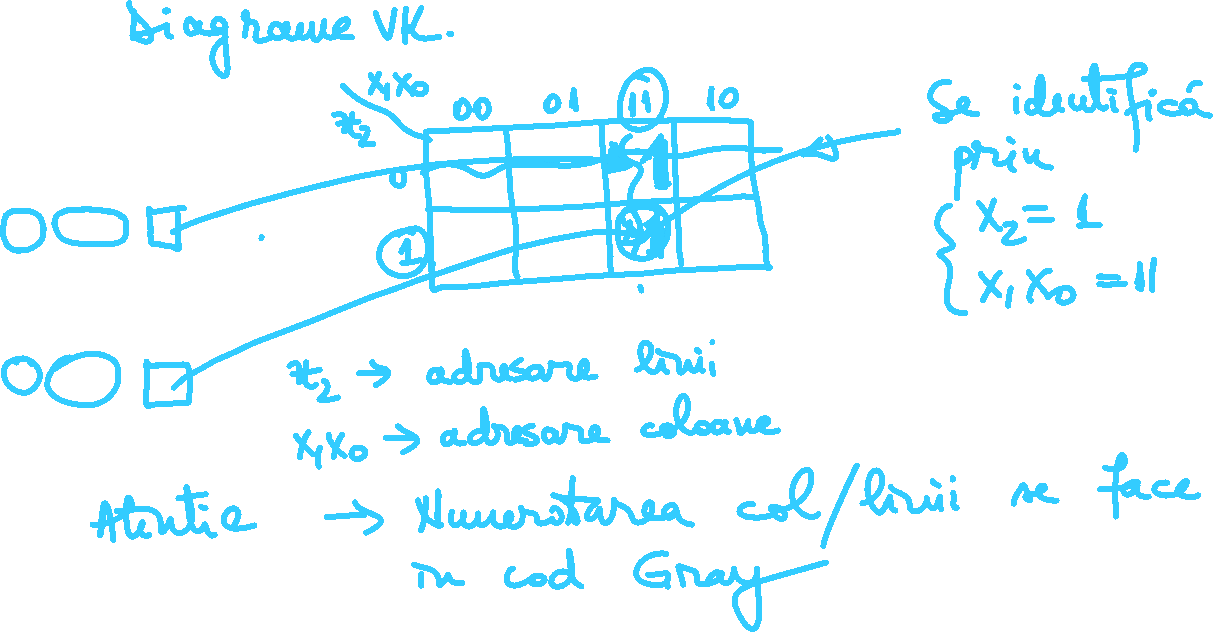 Diagrame VK.
x₁x₀
x₂
00 01 11 10
0 1
1 1
Se identifică
prin
x₂ = 1
x₁x₀ = 11
x₂ → adresare linii
x₁x₀ → adresare coloane
Atentie → Numerotarea col/linii se face
in cod Gray